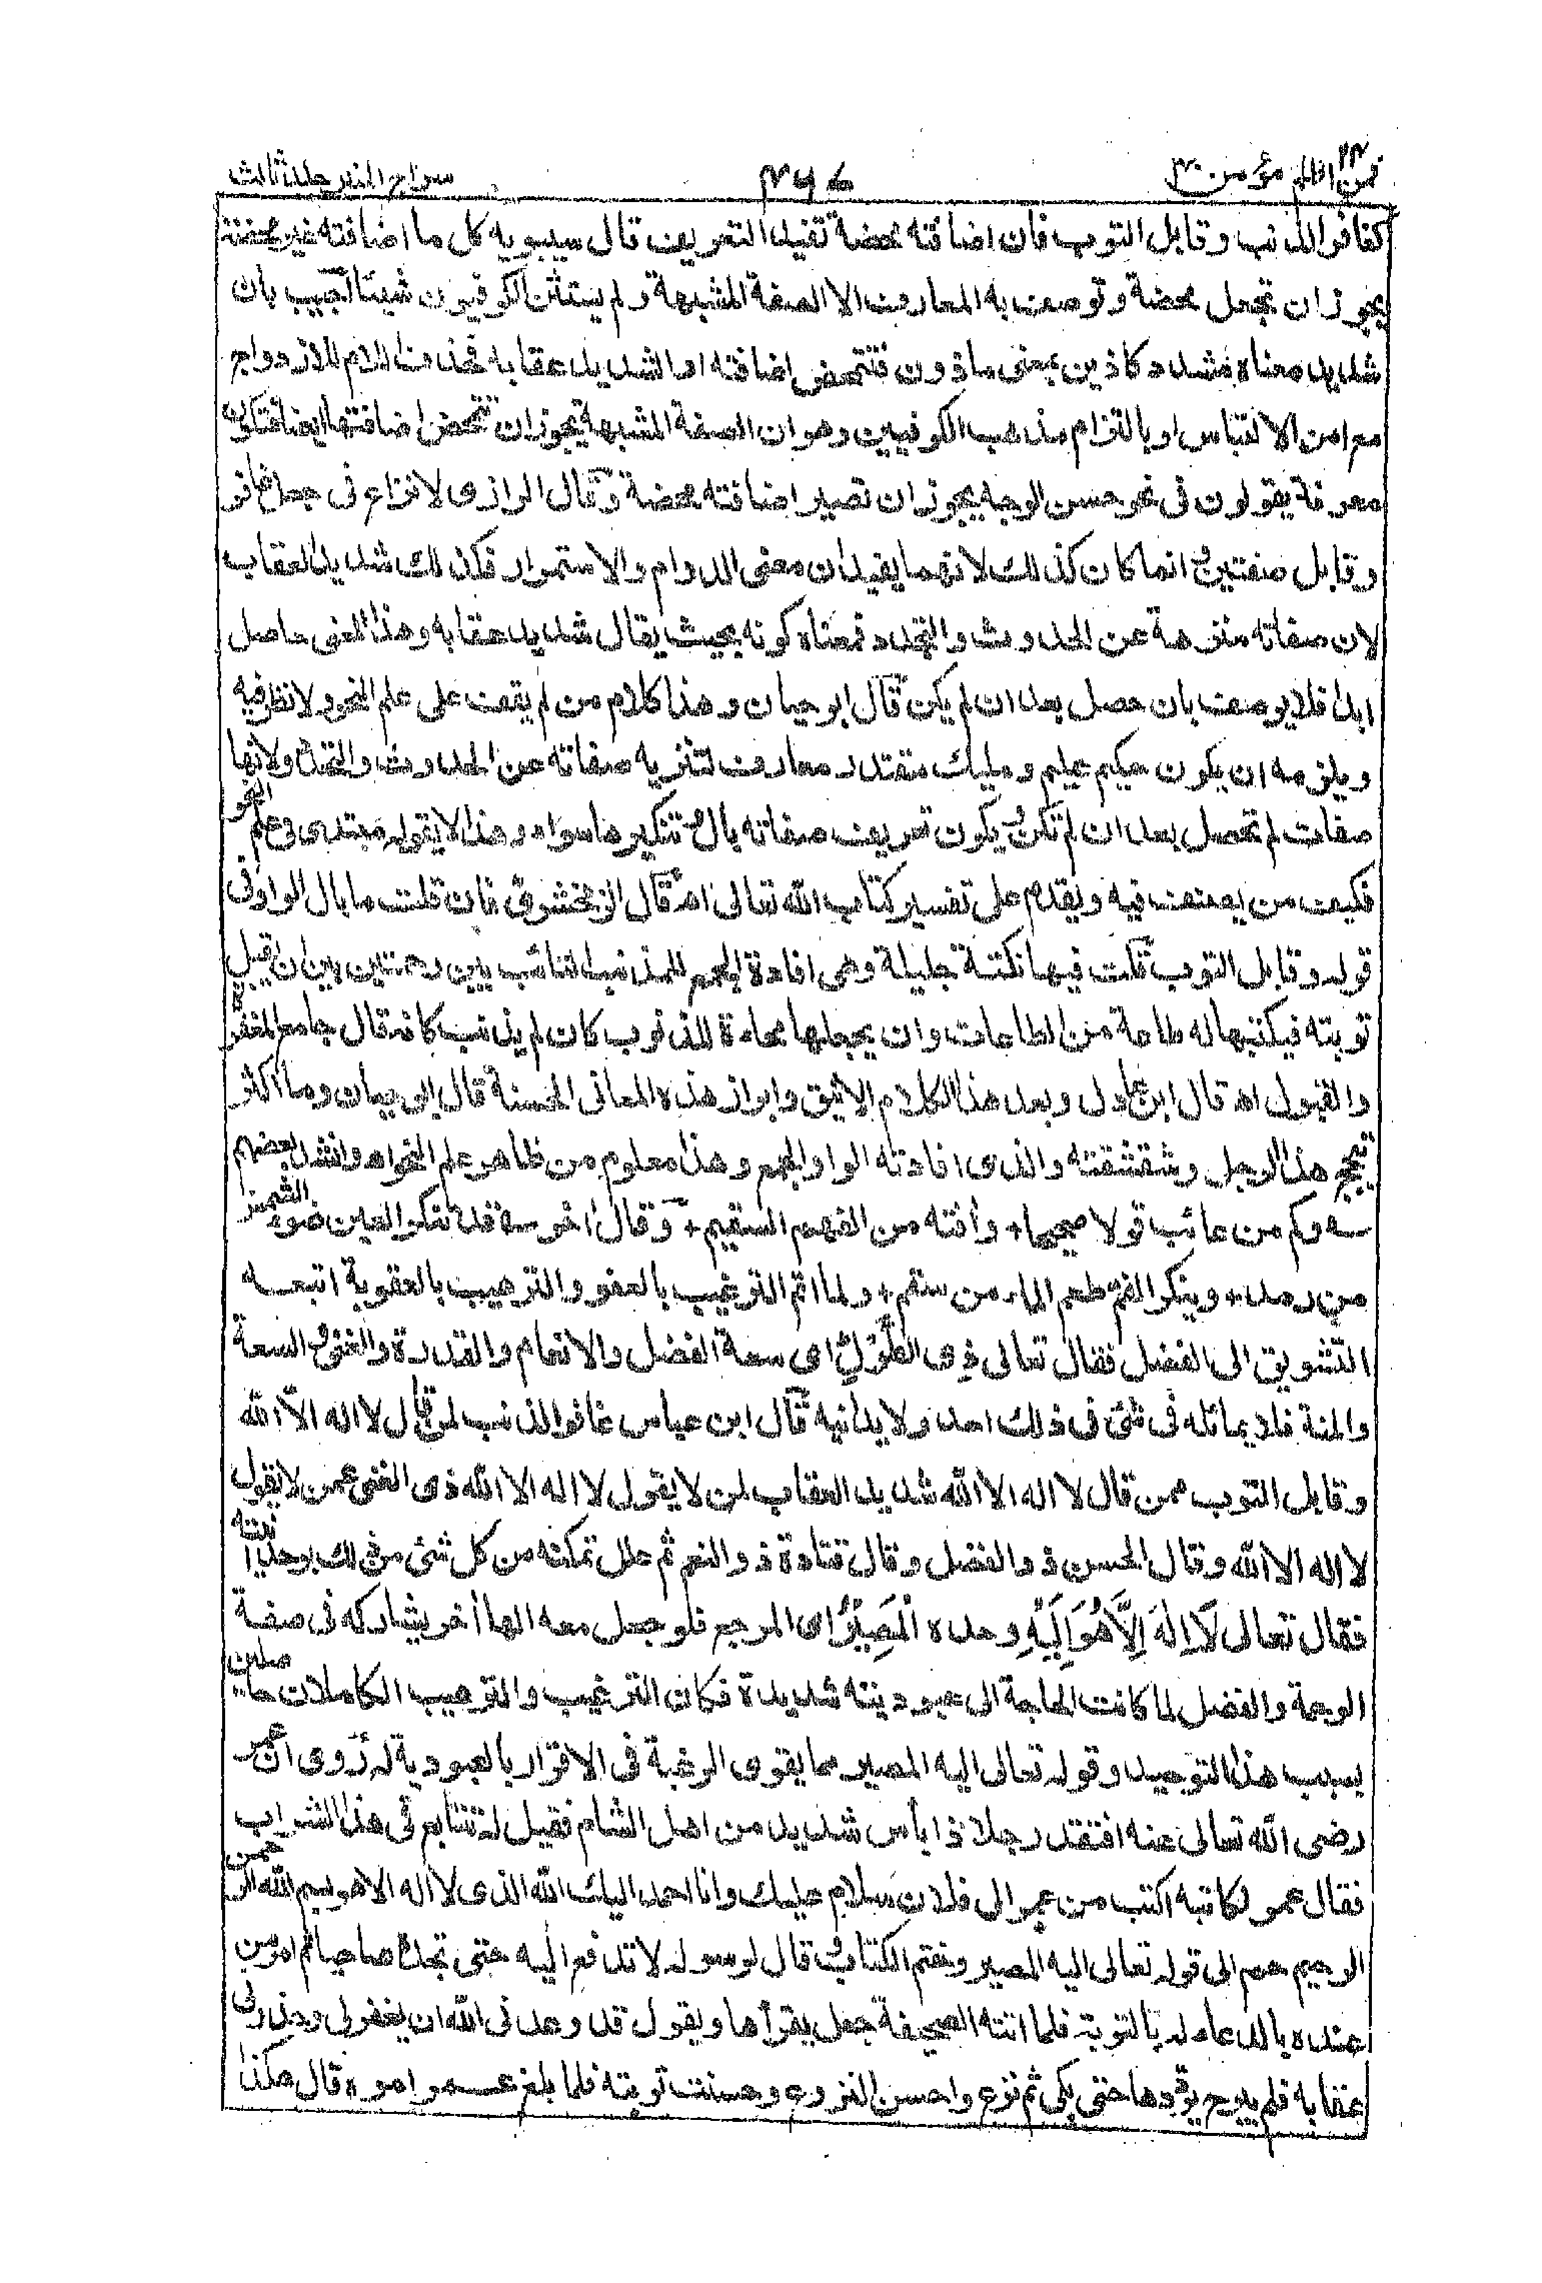 فمن اظلم ٢٤ مؤمن ٤٠ ٤٦٧ سراج المنير جلد ثالث
كغافر الذنب وقابل التوب فان اضافته محضة تفيد التعريف قال سيبويه كل ما اضافته غير محضة
يجوز ان تجعل محضة وتوصف به المعارف الا الصفة المشبهة ولم يستثن الكوفيون شيئا اجيب بان
شديد معناه مشدد كاذين بمعنى ماذون فتتمحض اضافته او الشديد عقابه فحذف اللام للازدواج
مع امن الالتباس او بالتزام مذهب الكوفيين وهو ان الصفة المشبهة يجوز ان تتمحض اضافتها ايضا فتكون
معرفة يقولون فى نحو حسن الوجه يجوز ان تصير اضافته محضة وقال الرازى لا نزاع فى جعل غافر
وقابل صفتين وانما كان كذلك لانهما يفيدان معنى الدوام والاستمرار فكذلك شديد العقاب
لان صفاته منزهة عن الحدوث والتجدد فمعناه كونه بحيث يقال شديد عقابه وهذا المعنى حاصل
ابدا فلا يوصف بان حصل بعد ان لم يكن قال ابوحيان وهذا كلام من لم يقف على علم النحو ولا نظر فيه
ويلزمه ان يكون حكيم عليم ومليك مقتدر معارف لتنزيه صفاته عن الحدوث والتجدد ولانها
صفات لم تحصل بعد ان لم تكن ويكون تعريف صفاته بال وتنكيرها سواء وهذا لا يقوله مبتدى فى علم النحو
فكيف من يصنف فيه ويقدم على تفسير كتاب الله تعالى اهـ قال الزمخشرى فان قلت ما بال الواو فى
قوله وقابل التوب قلت فيها نكتة جليلة وهى افادة الجمع للمذنب التائب بين رحمتين بين ان يقبل
توبته فيكتبها له طاعة من الطاعات وان يجعلها محاءة للذنوب كان لم يذنب كانه قال جامع المغفرة
والقبول اهـ قال ابن عادل وبعد هذا الكلام الانيق وابراز هذه المعانى الحسنة قال ابوحيان وما اكثر
تبجح هذا الرجل وشقشقته والذى افادته الواو الجمع وهذا معلوم من ظاهر علم النحو اهـ وانشد بعضهم
ـه وكم من عائب قولا صحيحا + وافته من الفهم السقيم + وقال اخر سه قد تنكر العين ضوء الشمس
من رمد + وينكر الفم طعم الماء من سقم + ولما اتم الترغيب بالعفو والترهيب بالعقوبة اتبعه
التشويق الى الفضل فقال تعالى ذِى الطَّوْلِ اى سعة الفضل والانعام والقدرة والغنى والسعة
والمنة فلا يماثله فى شئ فى ذلك احد ولا يدانيه قال ابن عباس غافر الذنب لمن قال لا اله الا الله
وقابل التوب ممن قال لا اله الا الله شديد العقاب لمن لا يقول لا اله الا الله ذى الغنى عمن لا يقول
لا اله الا الله وقال الحسن ذو الفضل وقال قتادة ذو النعم ثم علل تمكنه من كل شئ من ذلك بوحدانيته
فقال تعالى لَا اِلٰهَ اِلَّا هُوَ اِلَيْهِ وحده الْمَصِيْرُ اى المرجع فلو جعل معه الها اخر يشاركه فى صفة
الرحمة والفضل لما كانت الحاجة الى عبوديته شديدة فكان الترغيب والترهيب الكاملان حاصلين
بسبب هذا التوحيد وقوله تعالى اليه المصير مما يقوى الرغبة فى الاقرار بالعبودية له روى ان عمر
رضى الله تعالى عنه افتقد رجلا ذا بأس شديد من اهل الشام فقيل له تتابع فى هذا الشراب
فقال عمر لكاتبه اكتب من عمر الى فلان سلام عليك وانا احمد اليك الله الذى لا اله الا هو بسم الله الرحمن
الرحيم حم الى قوله تعالى اليه المصير وختم الكتاب وقال لرسوله لا تدفعه اليه حتى تجده صاحيا ثم امر من
عنده بالدعاء له بالتوبة فلما اتته الصحيفة جعل يقرأها ويقول قد وعدنى الله ان يغفر لى وحذرنى
عقابه فلم يبرح يرددها حتى بكى ثم نزع واحسن النزوع وحسنت توبته فلما بلغ عمر امره قال هكذا